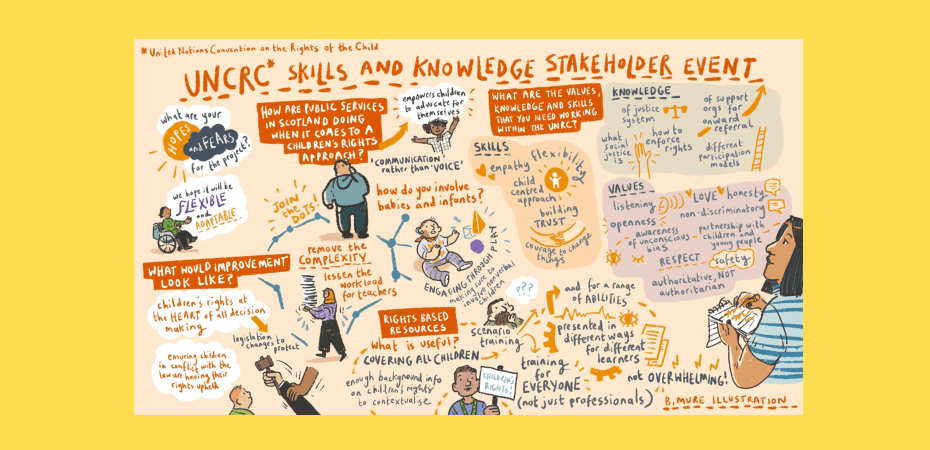 * United Nations Convention on the Rights of the Child
UNCRC* SKILLS AND KNOWLEDGE STAKEHOLDER EVENT
what are your
HOPES
and FEARS
for the project?
we hope it will be
FLEXIBLE
and
ADAPTABLE
HOW ARE PUBLIC SERVICES
IN SCOTLAND DOING
WHEN IT COMES TO A
CHILDREN'S RIGHTS
APPROACH?
empowers children
to advocate for
themselves
'COMMUNICATION'
rather than 'VOICE'
JOIN
the
DOTS!
how do you involve
babies and infants?
ENGAGING THROUGH PLAY
making sure to
involve nonverbal
children
WHAT WOULD IMPROVEMENT
LOOK LIKE?
children's rights at
the HEART of all decision
making
legislation
changes to
protect
ensuring children
in conflict with the
law are having their
rights upheld
remove the
COMPLEXITY
lessen the
workload
for teachers
RIGHTS BASED
RESOURCES
what is useful?
COVERING ALL CHILDREN
enough background info
on children's rights
to contextualise
CHILDREN'S
RIGHTS!
???
scenario
training
and for a range
of ABILITIES
presented in
different ways
for different
learners
training
for
EVERYONE
(not just professionals)
not OVERWHELMING!
WHAT ARE THE VALUES,
KNOWLEDGE AND SKILLS
THAT YOU NEED WORKING
WITHIN THE UNRC?
SKILLS
empathy
flexibility
child
centred
approach
building
TRUST
courage to change
things
KNOWLEDGE
of justice
system
of support
orgs for
onward
referral
what
social
justice
is
how to
enforce
rights
different
participation
models
VALUES
listening
LOVE
honesty
openness
non-discriminatory
awareness
of unconscious
bias
partnership with
children and
young people
RESPECT
safety
authoritative, NOT
authoritarian
B.MURE ILLUSTRATION